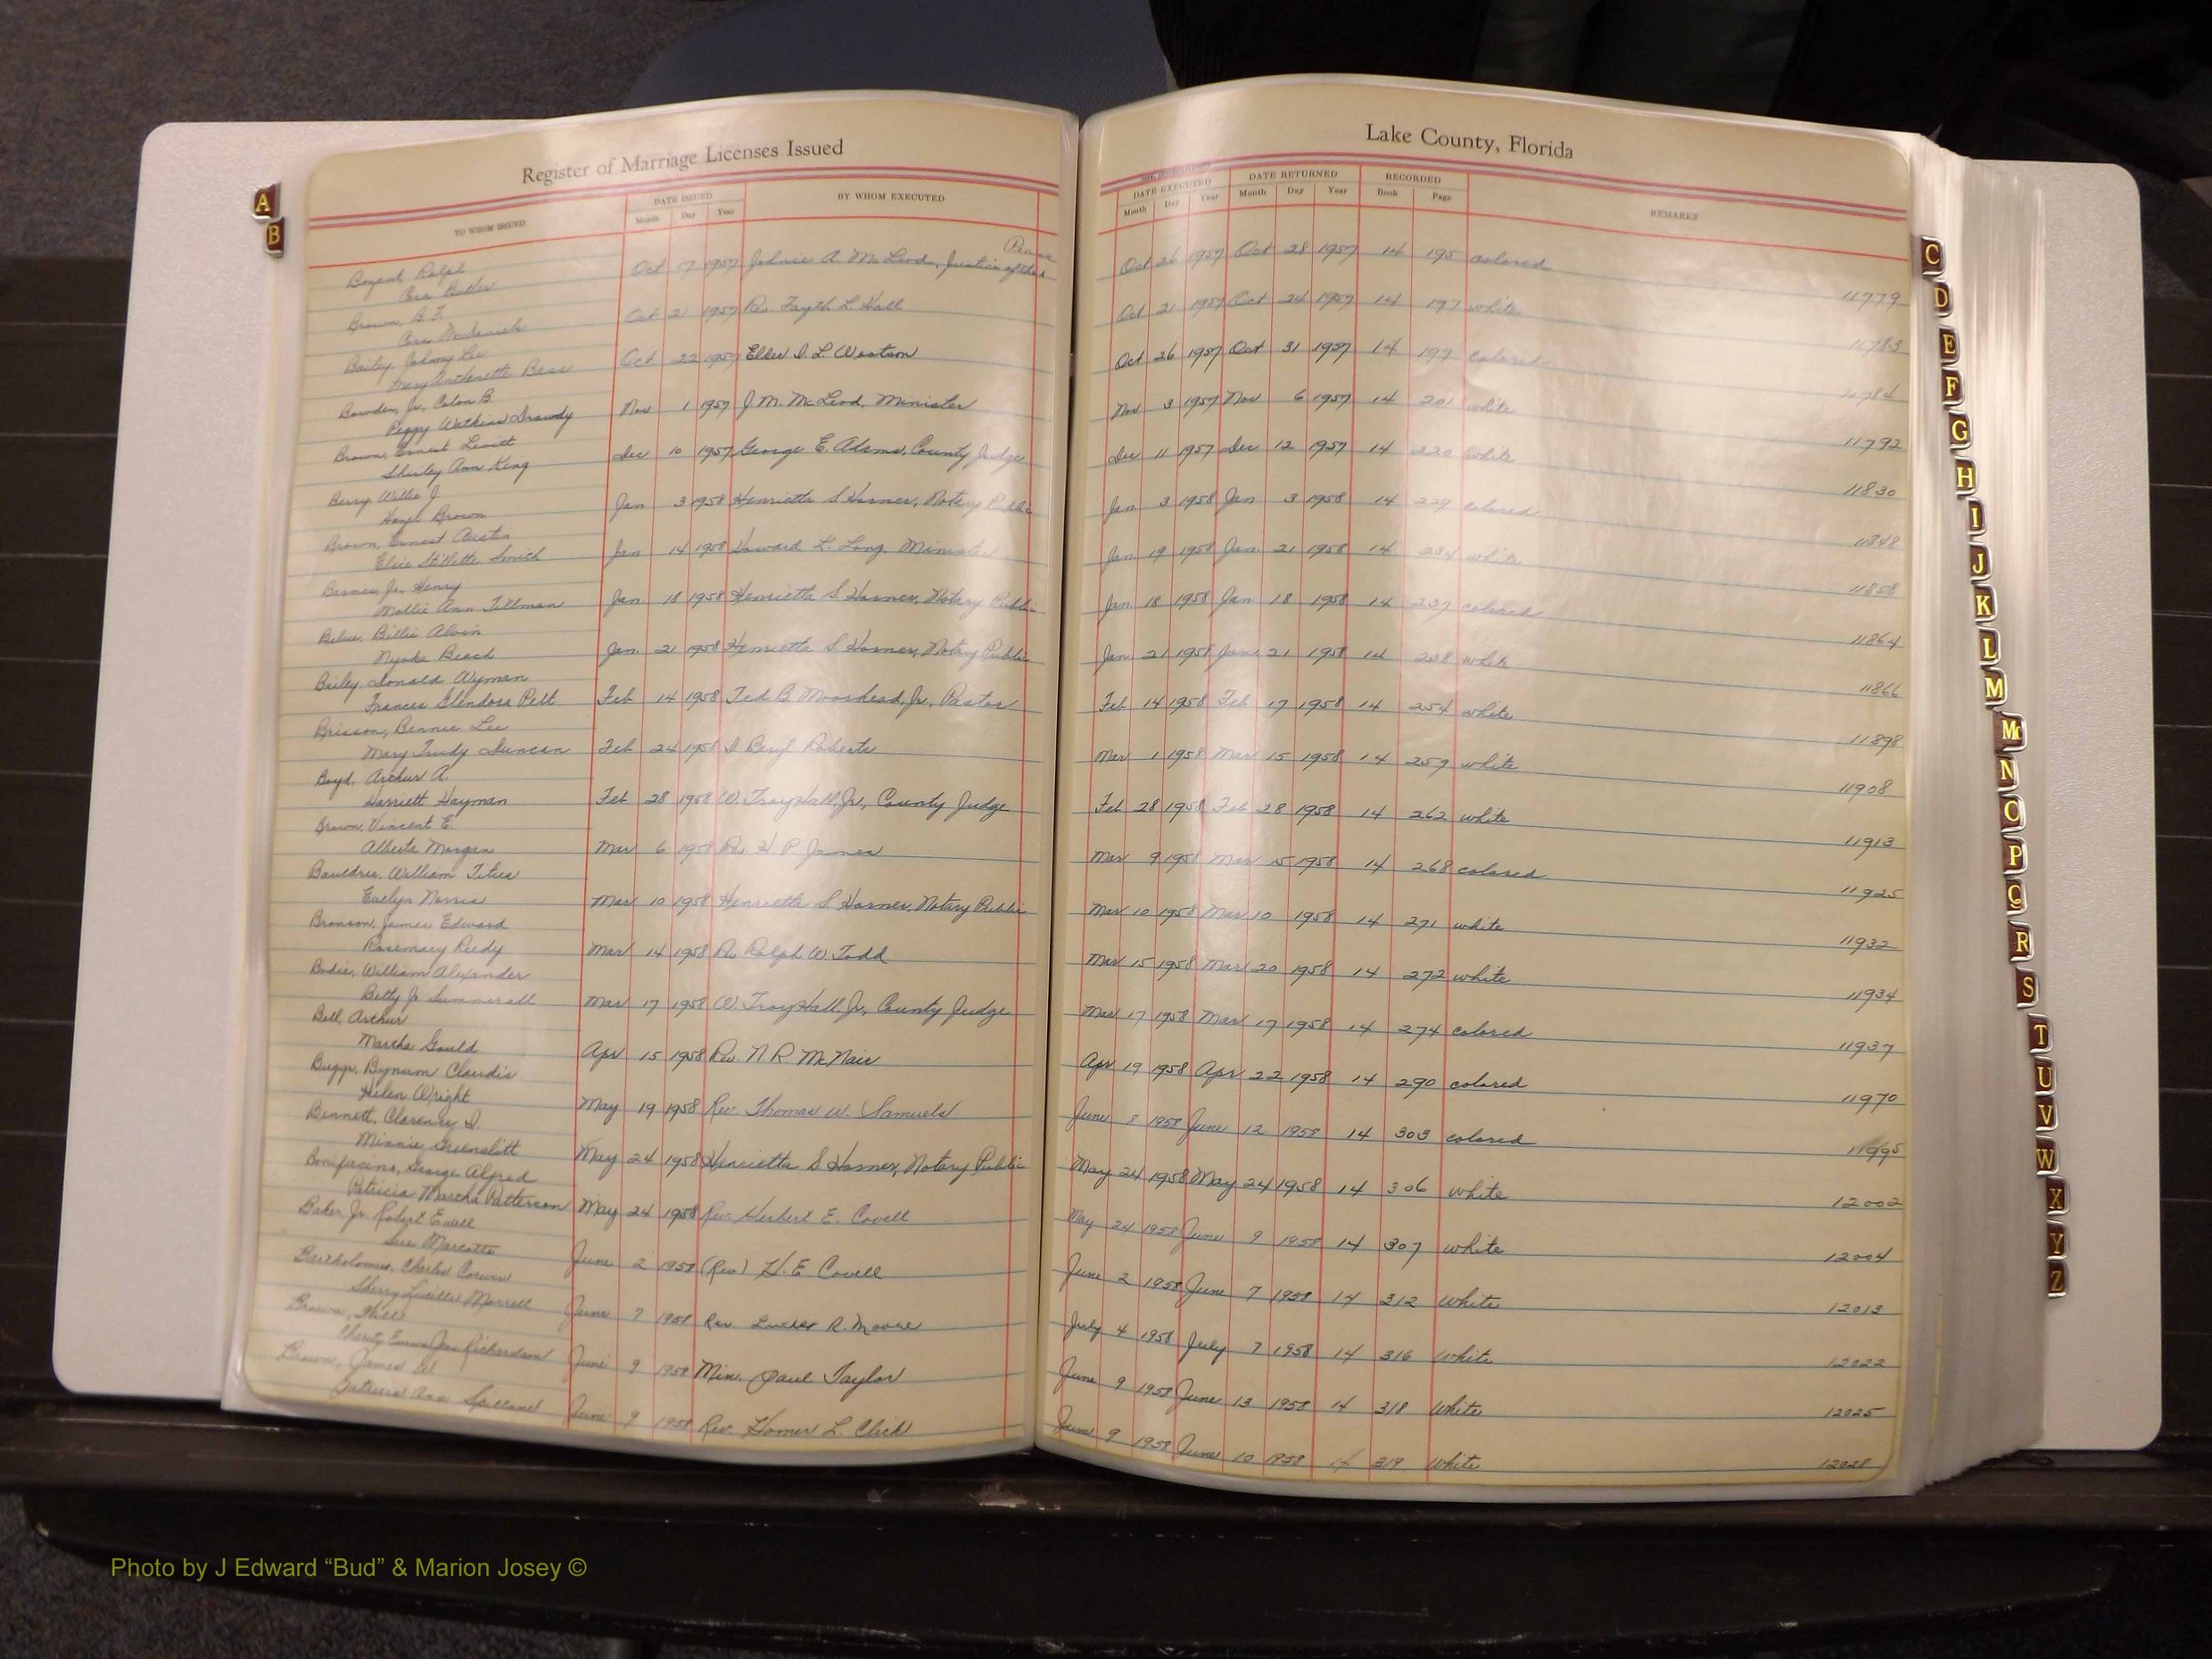 Register of Marriage Licenses Issued
TO WHOM ISSUED DATE ISSUED Month Day Year BY WHOM EXECUTED
Ralph Oct 17 1957 Johnie A. McLeod, Justice of the Peace
Brown, B.F. Oct 21 1957 Rev. Fayth L. Hall
Bailey, Johnny Lee Oct 22 1957 Elder I. L. Wootson
Mary
Bowden, Jr., Colon B. Nov 1 1957 J. M. McLeod, Minister
Peggy Watkins Drawdy
Brown, Ernest Dec 10 1957 George E. Adams, County Judge
Shirley Ann King
Berry, Willie J. Jan 3 1958 Henrietta S. Horner, Notary Public
Hazel Brown
Brown, Ernest Austin Jan 14 1958 Howard L. Long, Minister
Elsie Smith
Barnes, Jr. Henry Jan 18 1958 Henrietta S. Horner, Notary Public
Mollie Ann Tillman
Billie Alvin Jan 21 1958 Henrietta S. Horner, Notary Public
Beach
Bailey Donald Wyman Feb 14 1958 Ted B. Moorhead, Jr., Pastor
Frances Glendora Pelt
Brisson, Bennie Lee Feb 24 1958 Beryl Roberts
Mary Trudy Duncan
Boyd, Arthur A. Feb 28 1958 W. Troy Hall, Jr., County Judge
Harriett Hayman
Brown, Vincent E. Mar 6 1958 Rev. H. P. James
Alberta Morgan
Bauldree, William Titus Mar 10 1958 Henrietta S. Horner, Notary Public
Evelyn Norris
Bronson, James Edward Mar 14 1958 Rev. Ralph W. Todd
Rosemary Reedy
Bodie, William Alexander Mar 17 1958 W. Troy Hall, Jr., County Judge
Betty Jo Summerall
Bell, Arthur Apr 15 1958 Rev N. R. McNair
Martha Gould
Buggs, Bynum Claudis May 19 1958 Rev. Thomas W. Samuels
Helen Wright
Bennett, Clarence D. May 24 1958 Henrietta S. Horner, Notary Public
Minnie Greenslitt
Bonifacino, George Alfred May 24 1958 Rev. Herbert E. Covell
Patricia Martha Patterson
Baker, Jr. Robert Ewell June 2 1958 (Rev) H. E. Covell
Marcotte
Bartholomew, Charles Corwin June 7 1958 Rev Luther R. Moore
Sherry Lucille Morrell
Brown, June 9 1958 Min. Paul Taylor
Emma Jean Richardson
Brown, James W. June 9 1958 Rev. Homer L. Click
Patricia Ann
Lake County, Florida
DATE EXECUTED Month Day Year DATE RETURNED Month Day Year RECORDED Book Page REMARKS
Oct 26 1957 Oct 28 1957 14 195 colored 11779
Oct 21 1957 Oct 24 1957 14 197 white 11783
Oct 26 1957 Oct 31 1957 14 199 colored 11784
Nov 3 1957 Nov 6 1957 14 201 white 11792
Dec 11 1957 Dec 12 1957 14 220 white 11830
Jan 3 1958 Jan 3 1958 14 229 colored 11848
Jan 19 1958 Jan. 21 1958 14 234 white 11858
Jan 18 1958 Jan. 18 1958 14 237 colored 11864
Jan 21 1958 Jan 21 1958 14 238 white 11866
Feb 14 1958 Feb 17 1958 14 254 white 11898
Mar 1 1958 Mar 15 1958 14 259 white 11908
Feb 28 1958 Feb 28 1958 14 262 white 11913
Mar 9 1958 Mar 15 1958 14 268 colored 11925
Mar 10 1958 Mar 10 1958 14 271 white 11932
Mar 15 1958 Mar 20 1958 14 272 white 11934
Mar 17 1958 Mar 17 1958 14 274 colored 11937
Apr 19 1958 Apr 22 1958 14 290 colored 11970
June 8 1958 June 12 1958 14 303 colored 11995
May 24 1958 May 24 1958 14 306 white 12002
May 24 1958 June 9 1958 14 307 white 12004
June 2 1958 June 7 1958 14 312 White 12013
July 4 1958 July 7 1958 14 316 White 12022
June 9 1958 June 13 1958 14 318 White 12025
June 9 1958 June 10 1958 14 319 White 12028
A
B
C
D
E
F
G
H
I
J
K
L
M
Mc
N
O
P
Q
R
S
T
U
V
W
X
Y
Z
Photo by J Edward “Bud” & Marion Josey ©